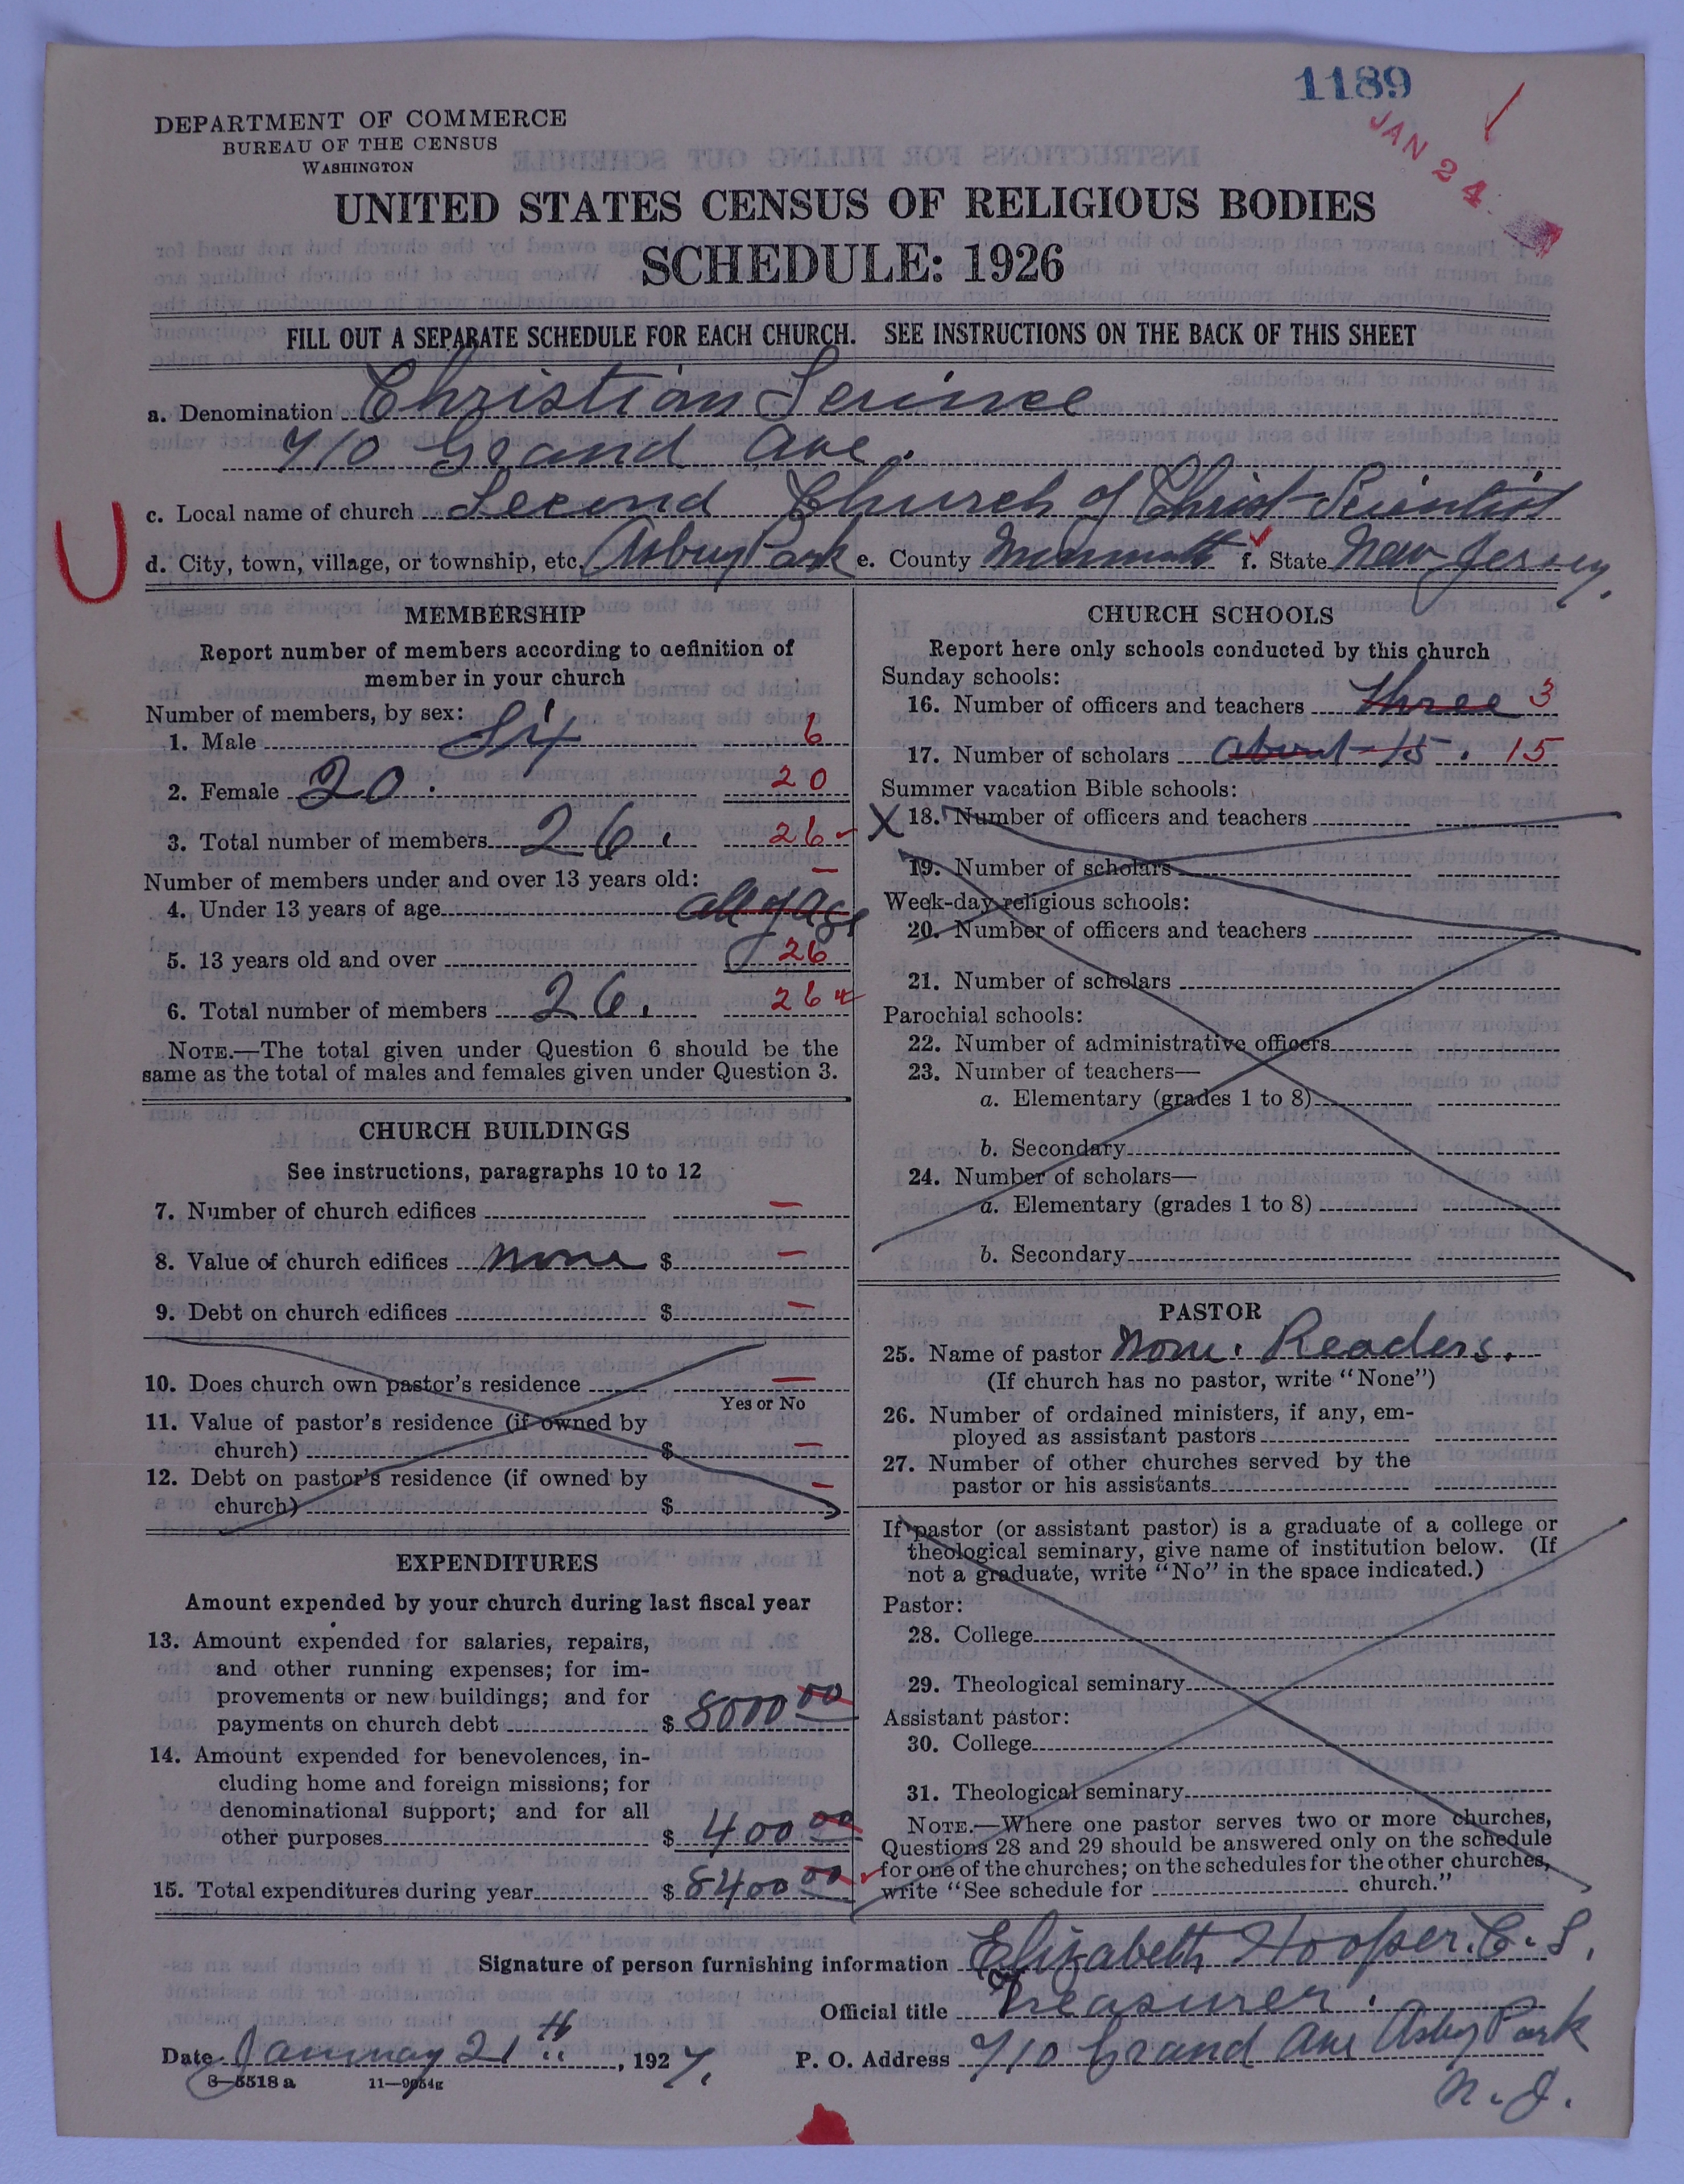 1189
JAN 24
DEPARTMENT OF COMMERCE
BUREAU OF THE CENSUS
WASHINGTON
UNITED STATES CENSUS OF RELIGIOUS BODIES
SCHEDULE: 1926
FILL OUT A SEPARATE SCHEDULE FOR EACH CHURCH. SEE INSTRUCTIONS ON THE BACK OF THIS SHEET
a. Denomination Christian Science
710 Grand Ave.
c. Local name of church Second Church of Christ Scientist
d. City, town, village, or township, etc. Asbury Park e. County Monmouth f. State New Jersey.
MEMBERSHIP
Report number of members according to definition of
member in your church
Number of members, by sex:
1. Male Six 6
2. Female 20. 20
3. Total number of members 26. 26
Number of members under and over 13 years old: —
4. Under 13 years of age all of age
5. 13 years old and over 26
6. Total number of members 26. 26
NOTE.—The total given under Question 6 should be the
same as the total of males and females given under Question 3.
CHURCH BUILDINGS
See instructions, paragraphs 10 to 12
7. Number of church edifices —
8. Value of church edifices none $ —
9. Debt on church edifices $ —
10. Does church own pastor's residence —
Yes or No
11. Value of pastor's residence (if owned by
church) $ —
12. Debt on pastor's residence (if owned by
church) $ —
EXPENDITURES
Amount expended by your church during last fiscal year
13. Amount expended for salaries, repairs,
and other running expenses; for im-
provements or new buildings; and for
payments on church debt $ 8000 00
14. Amount expended for benevolences, in-
cluding home and foreign missions; for
denominational support; and for all
other purposes $ 400 00
15. Total expenditures during year $ 8400 00
CHURCH SCHOOLS
Report here only schools conducted by this church
Sunday schools:
16. Number of officers and teachers three 3
17. Number of scholars about 15. 15
Summer vacation Bible schools:
X 18. Number of officers and teachers
19. Number of scholars
Week-day religious schools:
20. Number of officers and teachers
21. Number of scholars
Parochial schools:
22. Number of administrative officers
23. Number of teachers—
a. Elementary (grades 1 to 8)
b. Secondary
24. Number of scholars—
a. Elementary (grades 1 to 8)
b. Secondary
PASTOR
25. Name of pastor None. Readers.
(If church has no pastor, write "None")
26. Number of ordained ministers, if any, em-
ployed as assistant pastors
27. Number of other churches served by the
pastor or his assistants
If pastor (or assistant pastor) is a graduate of a college or
theological seminary, give name of institution below. (If
not a graduate, write "No" in the space indicated.)
Pastor:
28. College
29. Theological seminary
Assistant pastor:
30. College
31. Theological seminary
NOTE.—Where one pastor serves two or more churches,
Questions 28 and 29 should be answered only on the schedule
for one of the churches; on the schedules for the other churches,
write "See schedule for church."
Signature of person furnishing information Elizabeth Hooper. C.S.
Official title Treasurer.
Date January 21th, 1927. P. O. Address 710 Grand Ave Asbury Park
N. J.
8—5518 a 11—9054g